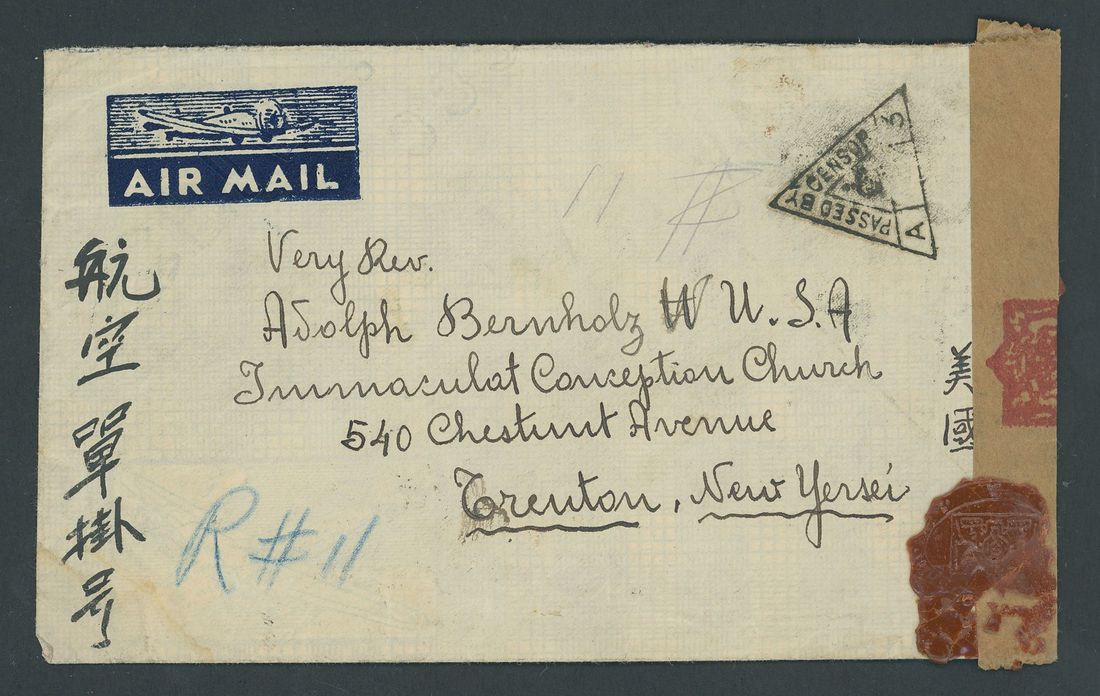 AIR MAIL
PASSED BY CENSOR
A 13
11 #
航空單掛号
Very Rev.
Adolph Bernholz W U.S.A
Immaculat Conception Church
540 Chestnut Avenue
Trenton, New Yersei
美國
R # 11